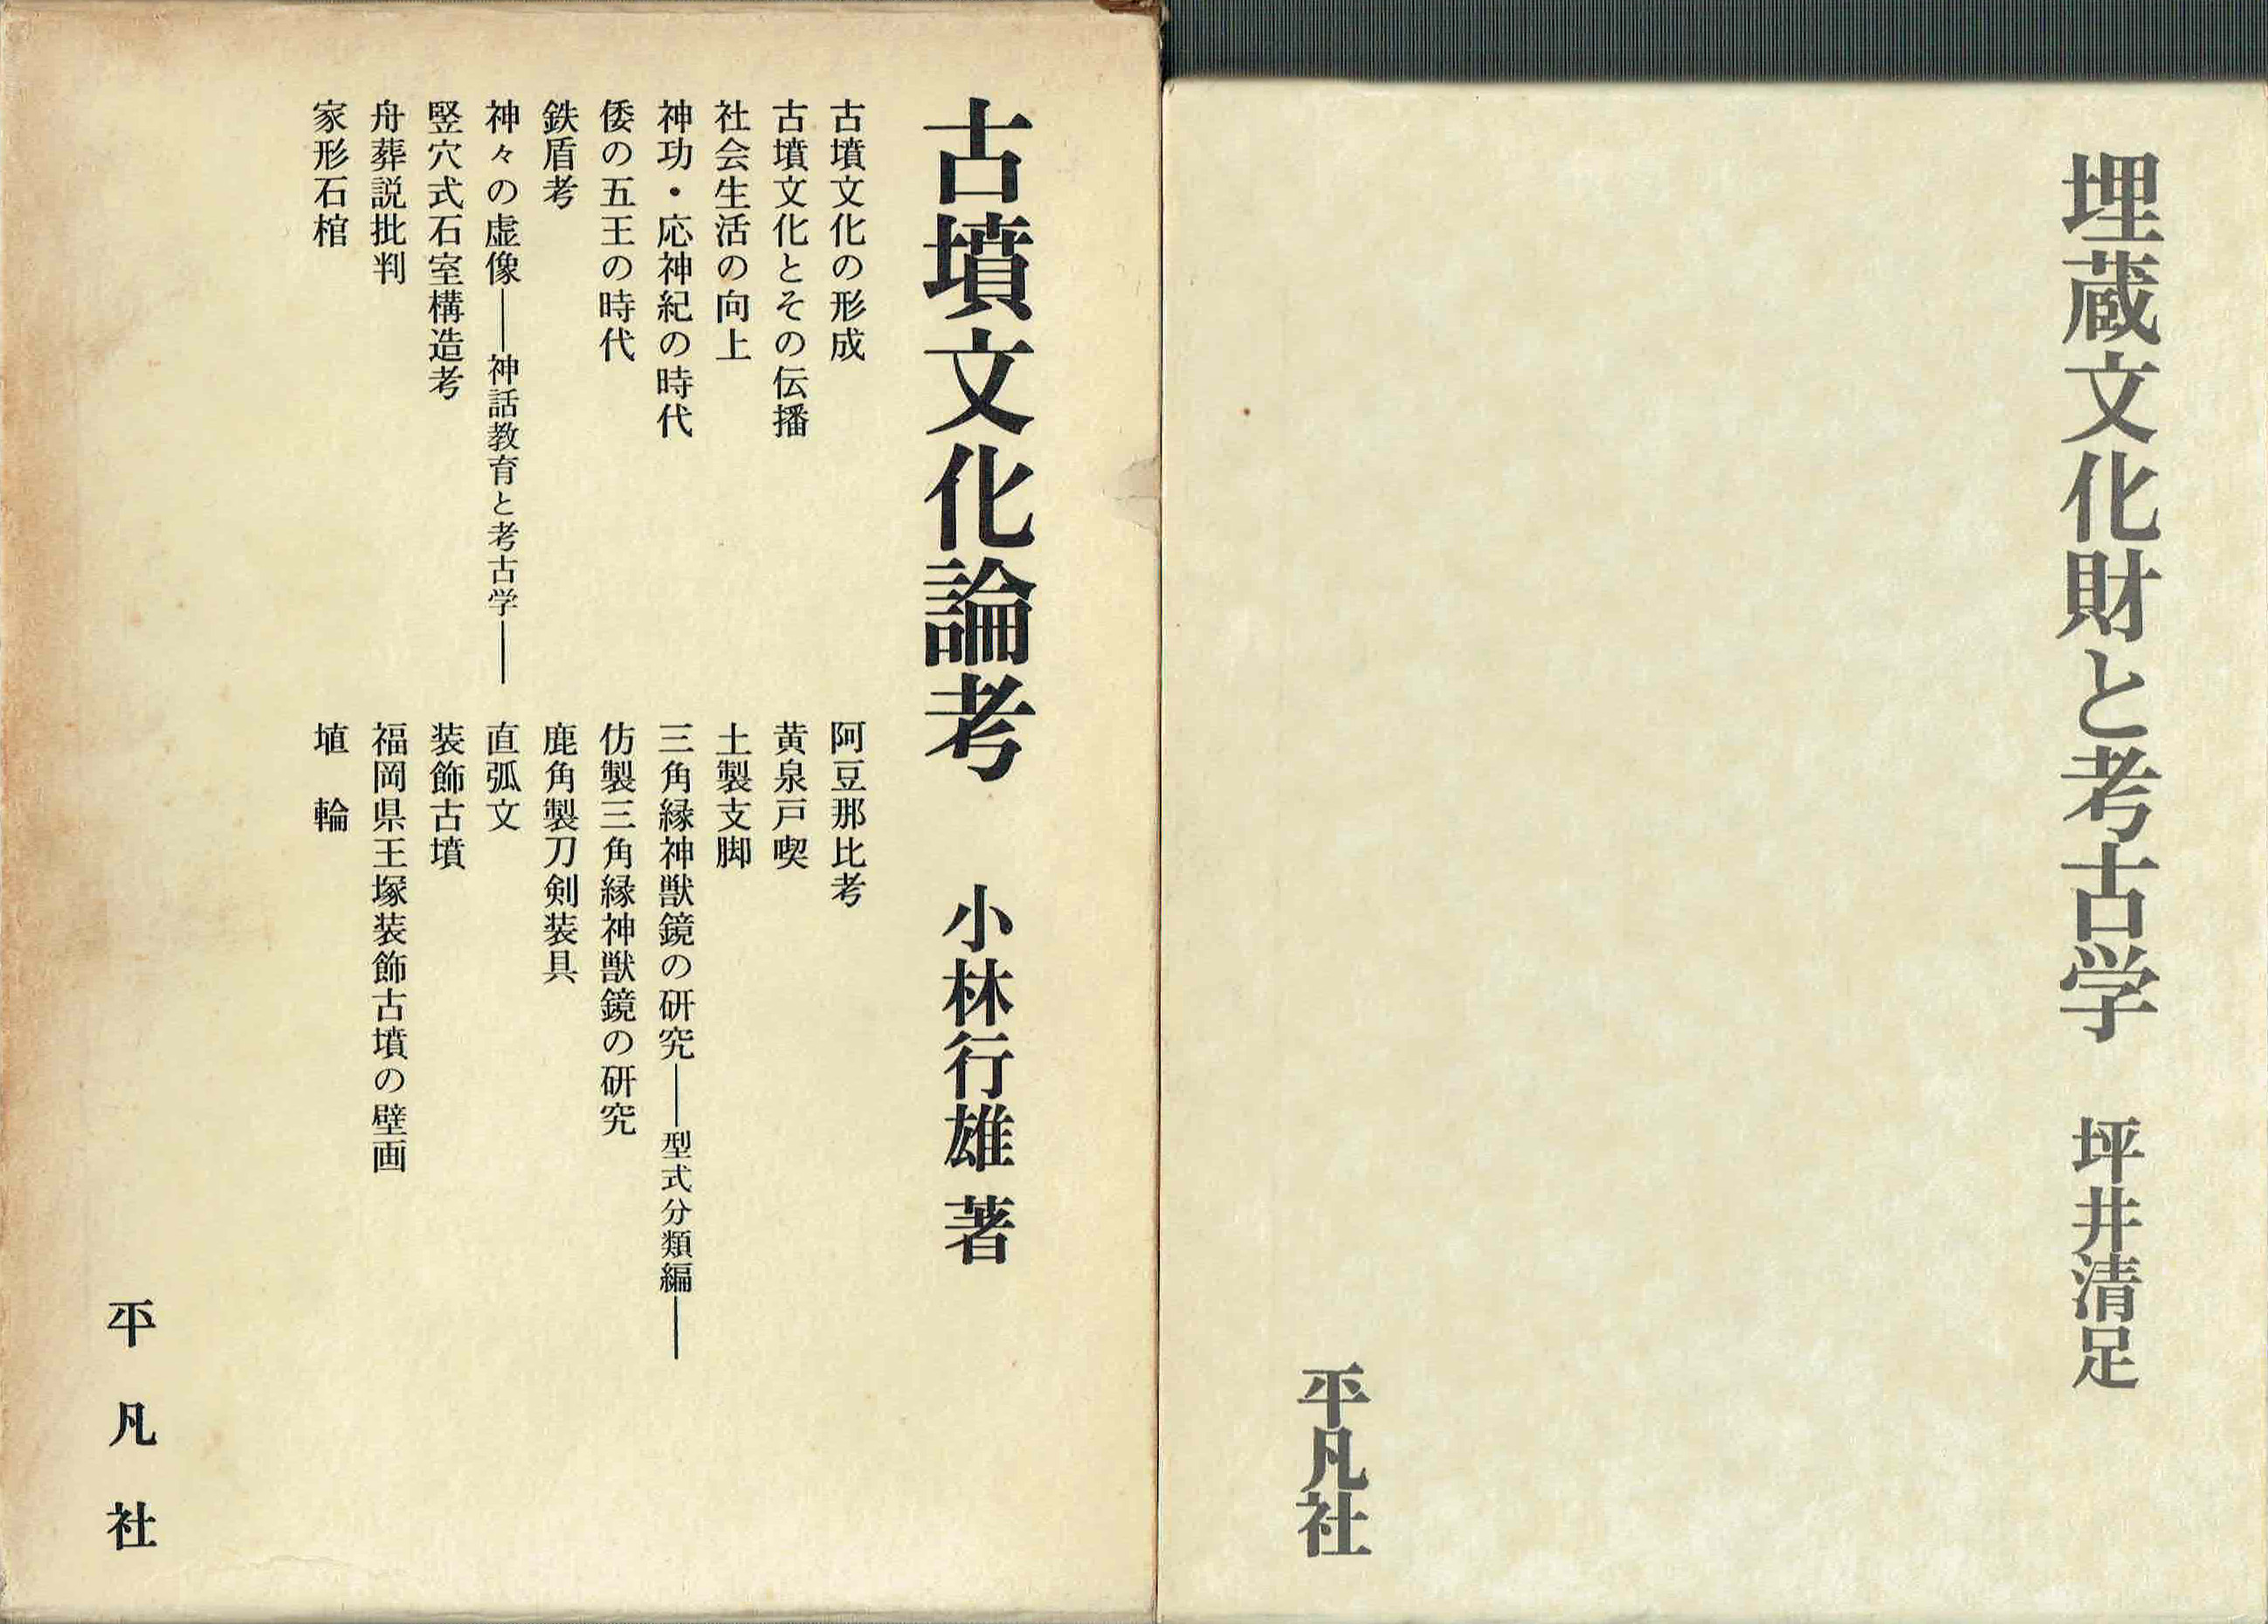 埋蔵文化財と考古学 坪井清足
平凡社
古墳文化論考 小林行雄 著
古墳文化の形成
古墳文化とその伝播
社会生活の向上
神功・応神紀の時代
倭の五王の時代
鉄盾考
神々の虚像――神話教育と考古学――
竪穴式石室構造考
舟葬説批判
家形石棺
阿豆那比考
黄泉戸喫
土製支脚
三角縁神獣鏡の研究――型式分類編――
仿製三角縁神獣鏡の研究
鹿角製刀剣装具
直弧文
装飾古墳
福岡県王塚装飾古墳の壁画
埴 輪
平凡社